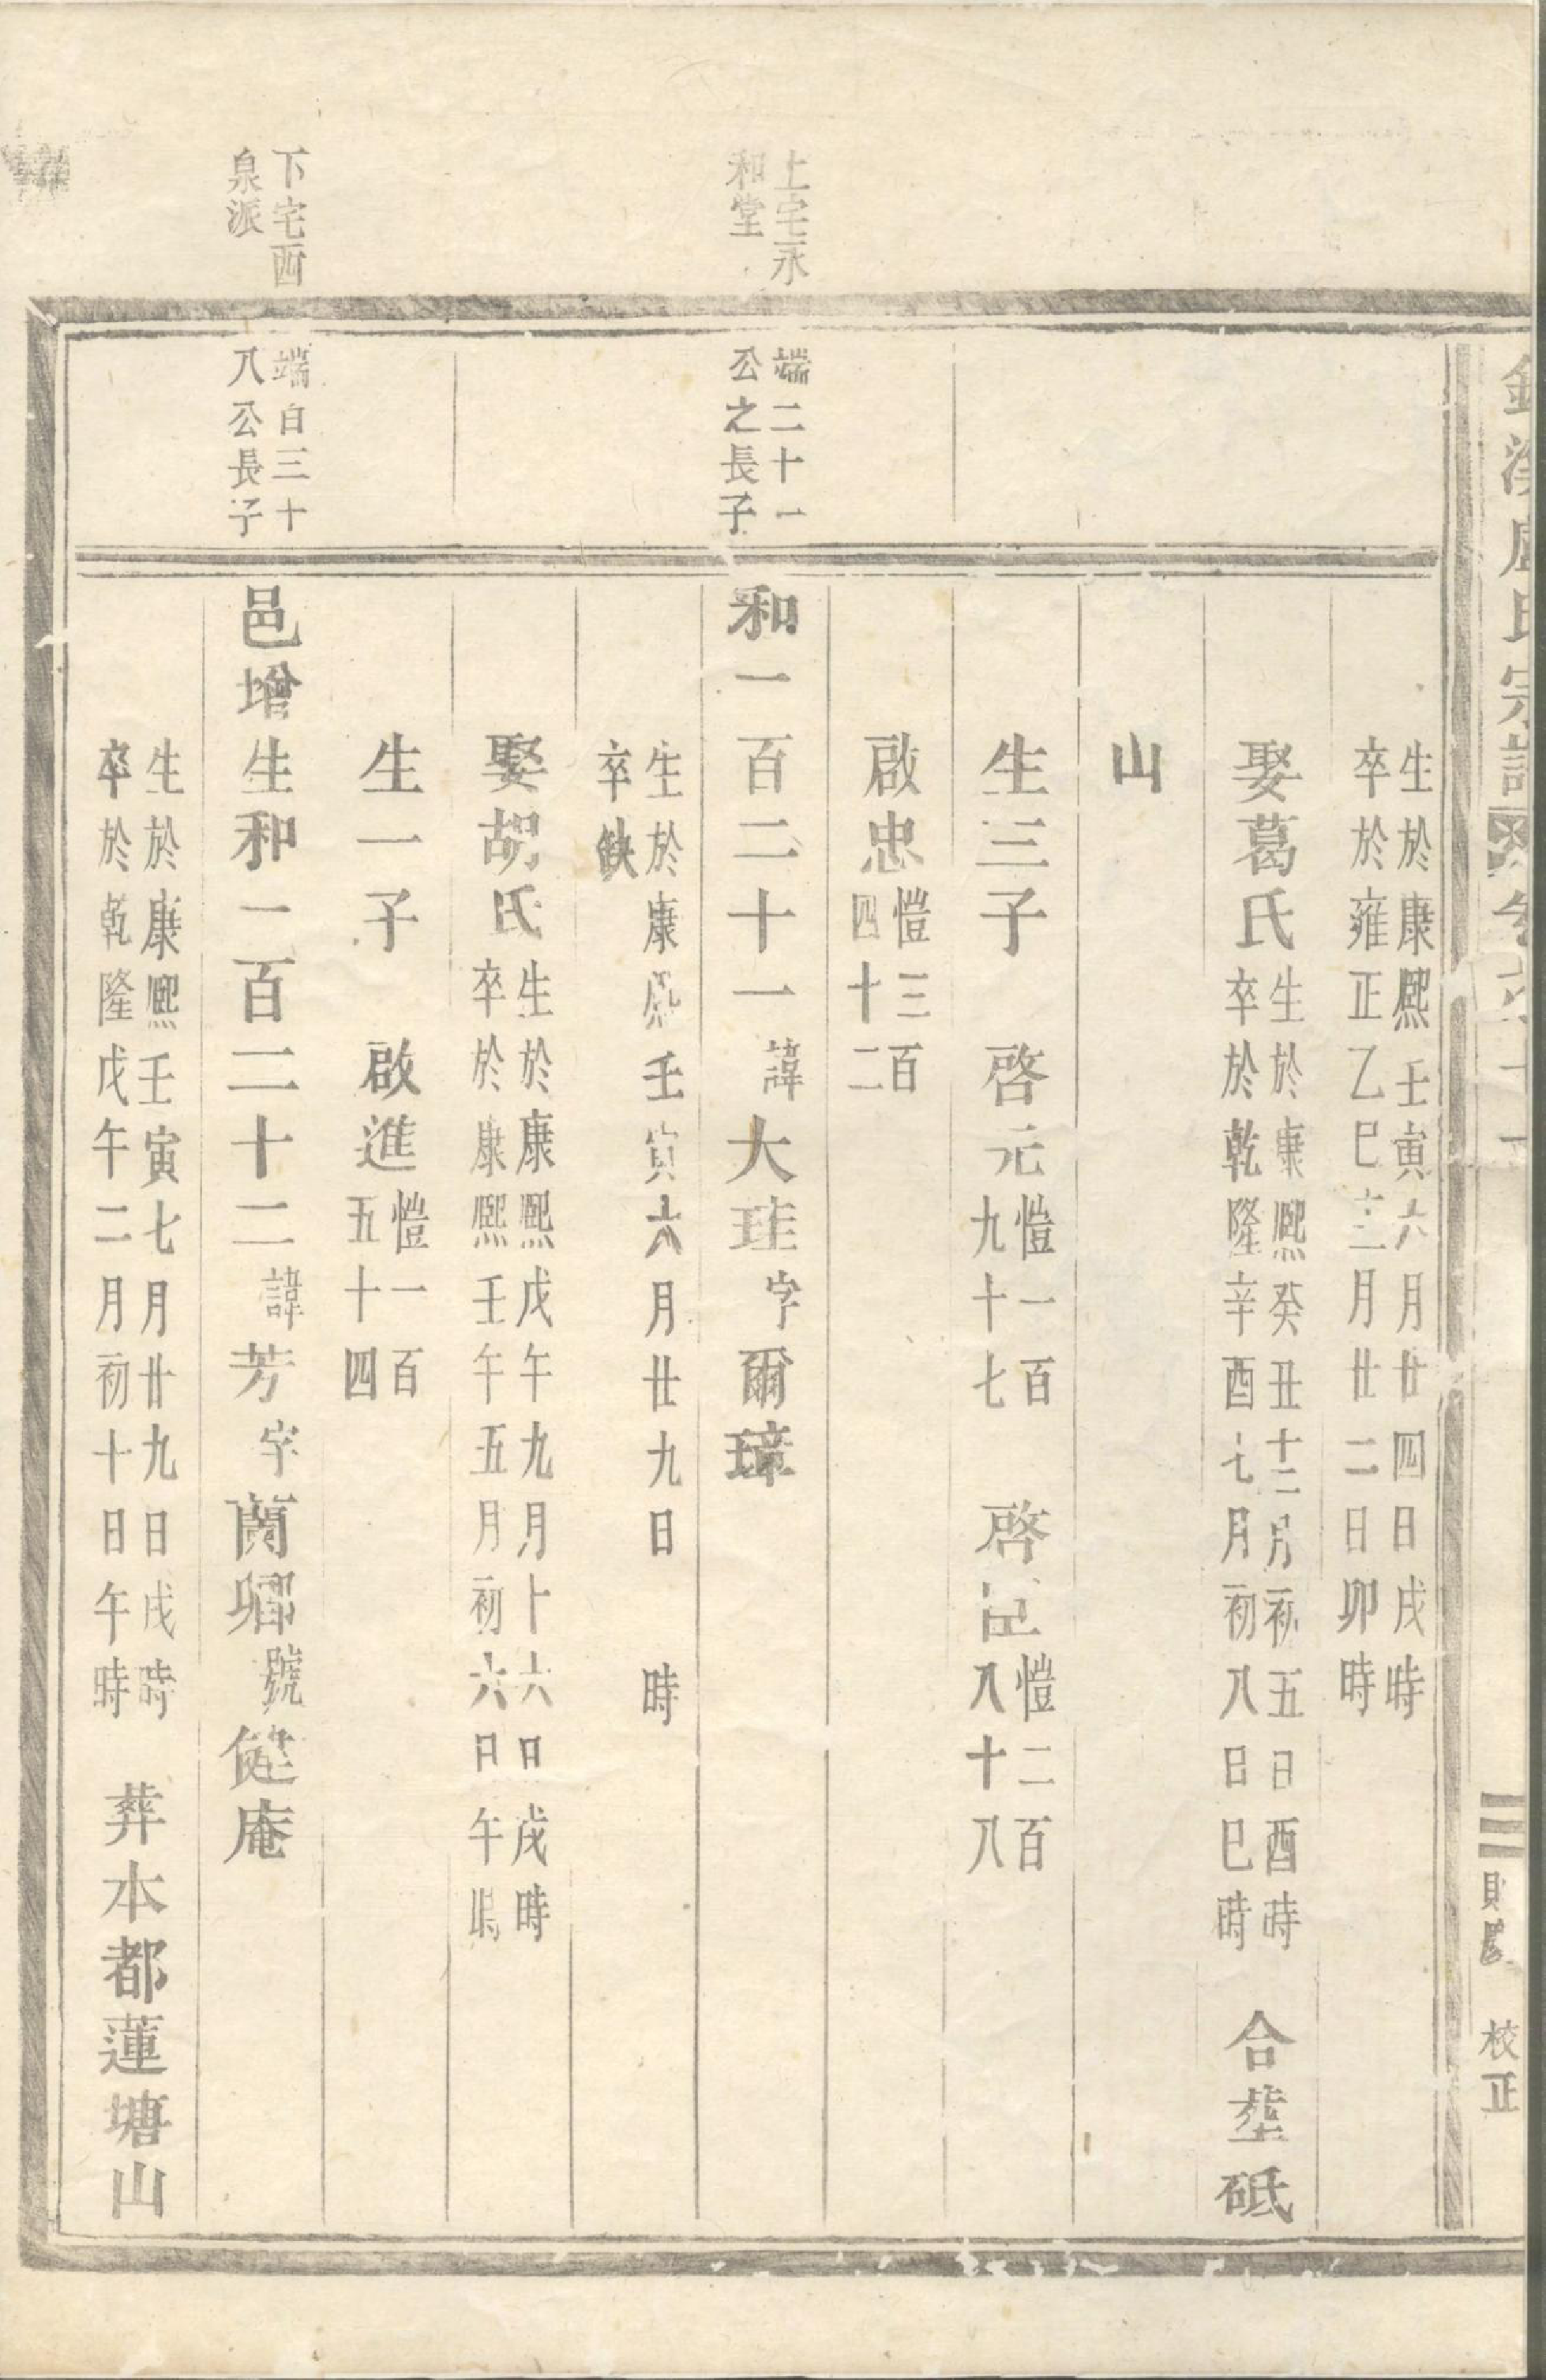 盧氏宗譜
校正
生於康熙壬寅六月廿四日戌時
卒於雍正乙巳十二月廿二日卯時
娶葛氏生於康熙癸丑十二月初五日酉時
卒於乾隆辛酉七月初八日巳時
合塟砥
山
生三子 啓元愷一百
九十七
啓 愷二百
八十八
啟忠愷三百
四十二
上宅永
和堂
端二十一
公之長子
和一百二十一諱大珪字爾璋
生於康熙壬寅六月廿九日 時
卒缺
娶胡氏生於康熙戊午九月十六日戌時
卒於康熙壬午五月初六日午時
生一子 啟進愷一百
五十四
下宅西
泉派
端百三十
八公長子
邑增生和一百二十二諱芳字蘭墀號健庵
生於康熙壬寅七月廿九日戌時
卒於乾隆戊午二月初十日午時
葬本都蓮塘山